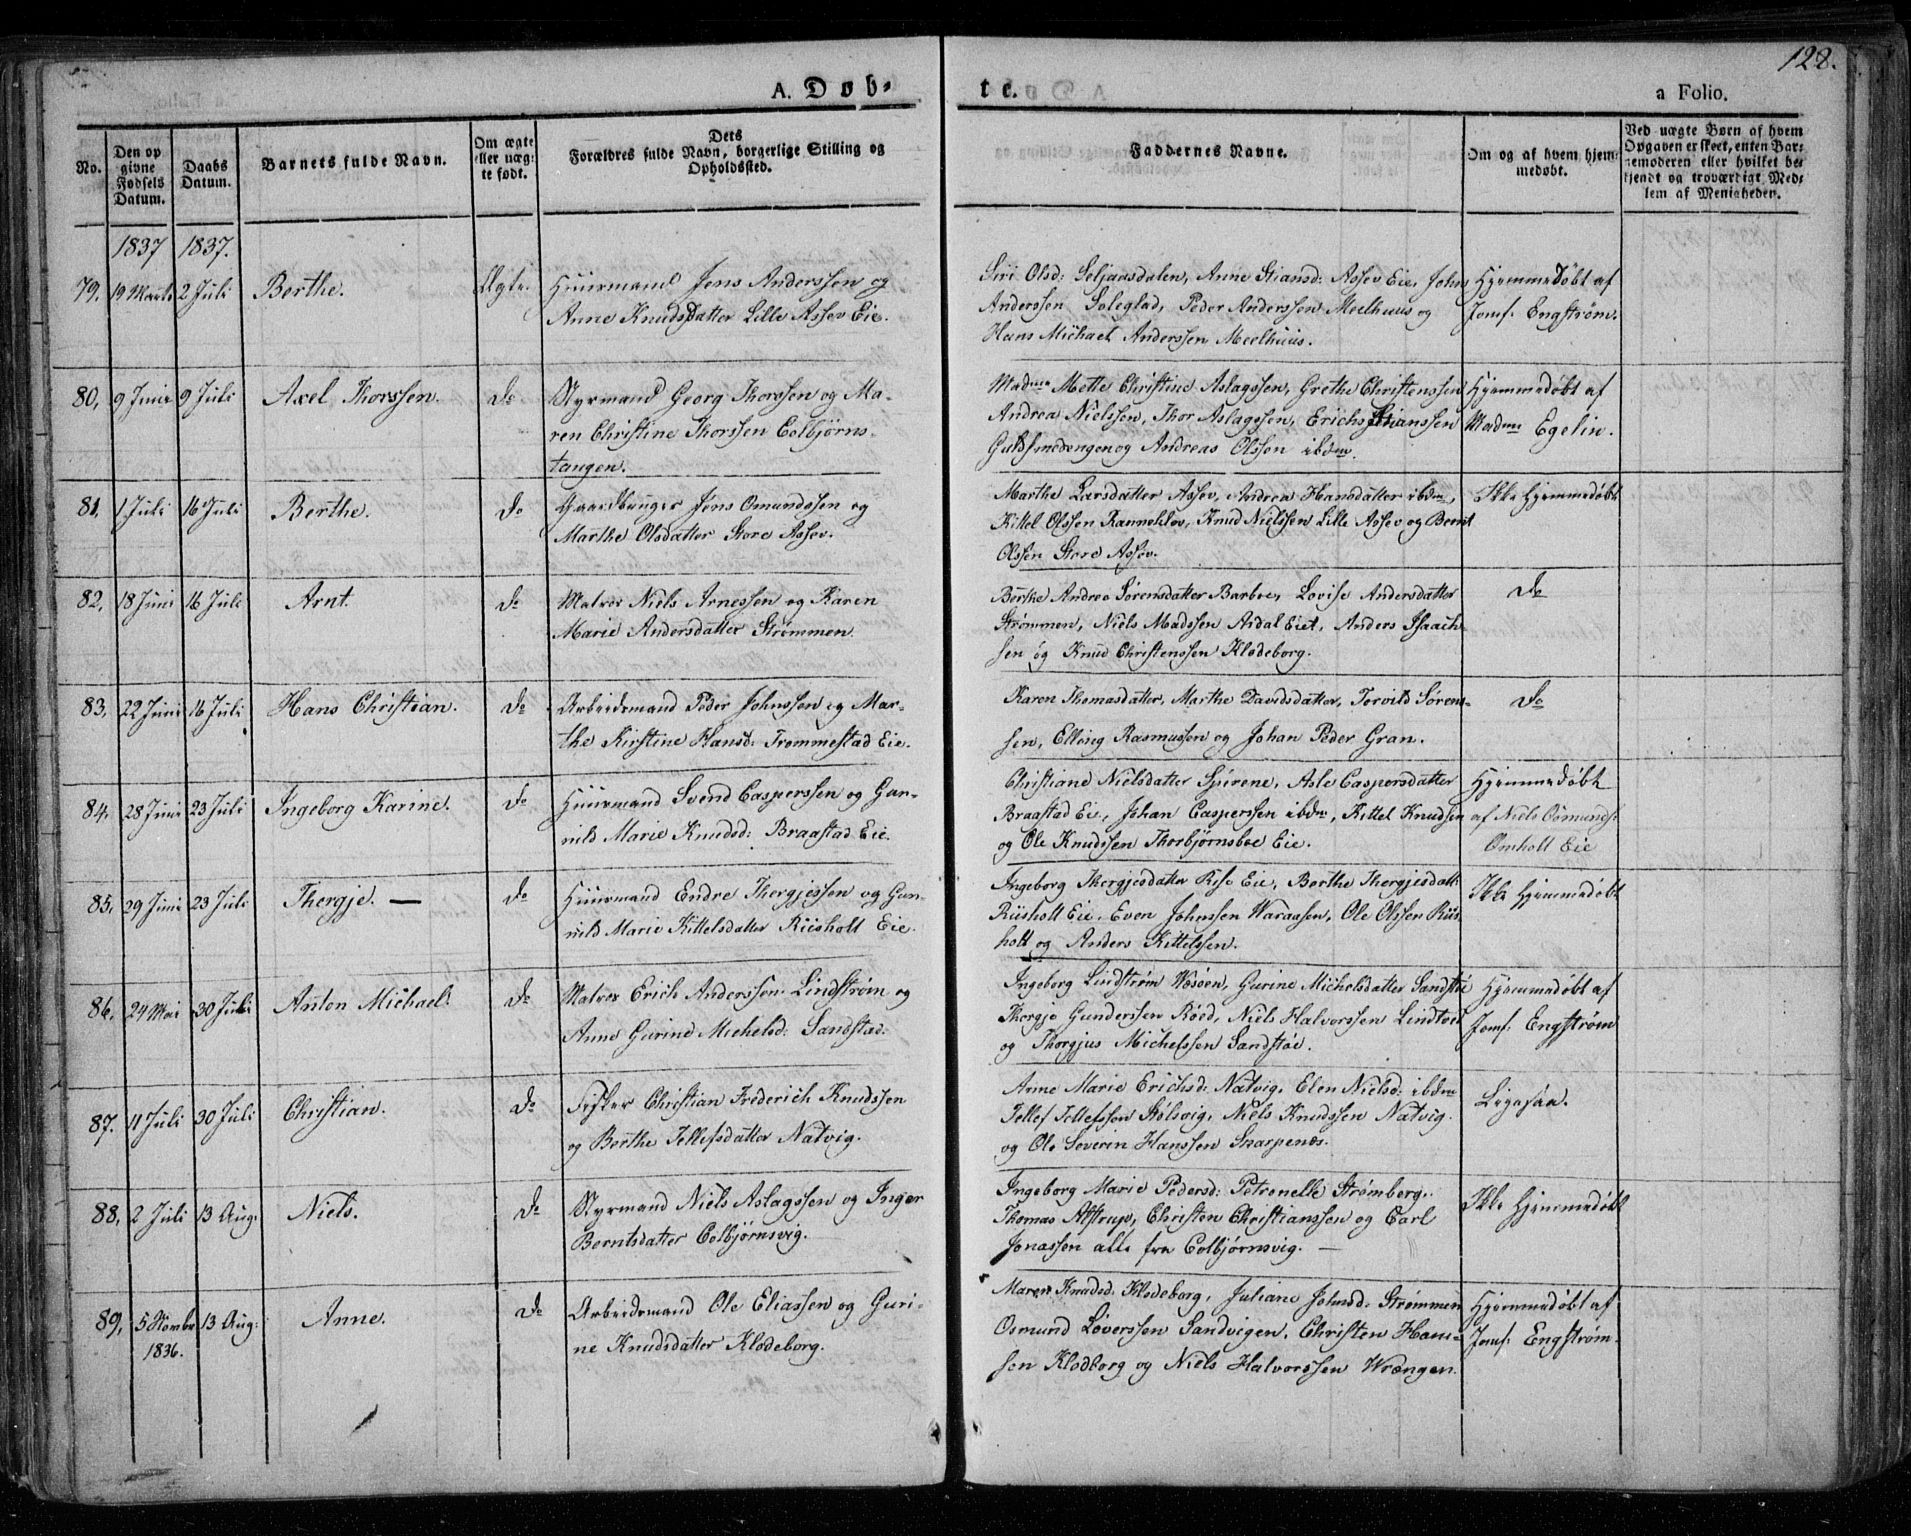 128.
A. Døb-
te.
a Folio.
No.
Den op
givne
Fødsels
Datum.
Daabs
Datum.
Barnets fulde Navn.
Om ægte
eller uæg-
te født.
Dets
Forældres fulde Navn, borgerlige Stilling og
Opholdssted.
Faddernes Navne.
Om og af hvem hjem-
medøbt.
Ved uægte Børn af hvem
Opgaven er skeet, enten Bar-
nemoderen eller hvilket be-
kjendt og troværdigt Med-
lem af Menigheden.
1837 1837.
79. 19 Marts 2 Juli Berthe. Ægte.
Huurmand Jens Anderssen og
Anne Knudsdatter Lille Assev Eie.
Siri Olsd: Seljaasdalen, Anne Stiansd: Assev Eie, John
Anderssen Soleglad, Peder Anderssen Meelhuus og
Hans Michael Anderssen Meelhuus.
Hjemmedøbt af
Jomf. Engstrøm.
80. 9 Juni 9 Juli Axel Thorssen. do
Styrmand Georg Thorssen og Ma-
ren Christine Thorssen Colbjørns-
tangen.
Madme Mette Christine Aslagssen, Grethe Christenssen
Andrea Nielssen, Thor Aslagssen, Erich Stianssen
Guldsmedengen og Andreas Olssen ibdm.
Hjemmedøbt af
Madme Egelin.
81. 1 Juli 16 Juli Berthe. do
Gaardbruger Jens Omundssen og
Marthe Olsdatter Store Assev.
Marthe Larsdatter Assev, Andrea Hansdatter ibdm,
Kittel Olssen Rannekløv, Knud Nielssen Lille Assev og Bernt
Olssen Store Assev.
Ikke Hjemmedøbt
82. 18 Juni 16 Juli Arnt. do
Matros Niels Arnessen og Karen
Marie Andersdatter Strømmen.
Birthe Andrea Sørensdatter Barboe, Lovise Andersdatter
Strømmen, Niels Madssen Asdal Eiet, Anders Isaach-
sen og Knud Christenssen Klodeborg.
do
83. 22 Juni 16 Juli Hans Christian. do
Arbeidsmand Peder Johnssen og Mar-
the Kirstine Hansd: Trommestad Eie.
Karen Thomasdatter, Marthe Davidsdatter, Torvild Søren-
sen, Elling Rasmussen og Johan Peder Gran.
do
84. 28 Juni 23 Juli Ingeborg Karine. do
Huurmand Svend Casperssen og Gun-
nild Marie Knudsd: Braastad Eie.
Christiane Nielsdatter Spirene, Asle Caspersdatter
Braastad Eie, Johan Casperssen ibdm, Kittel Knudsen
og Ole Knudssen Thorbjørnsboe Eie.
Hjemmedøbt
af Niels Osmunds:
Omholt Eie
85. 29 Juni 23 Juli Thergje. — do
Huurmand Endre Thergjessen og Gun-
nild Marie Kittelsdatter Riisholt Eie.
Ingeborg Thergjesdatter Rise Eie, Berthe Thergjesdatt:
Riisholt Eie, Even Johnssen Waraasen, Ole Olssen Riis-
holt og Anders Kittelssen.
Ikke Hjemmedøbt
86. 24 Mai 30 Juli Anton Michael. do
Matros Erich Anderssen Lindstrøm og
Anne Gurine Michelsd: Sandstad:
Ingeborg Lindstrøm Wesøen, Gurine Michelsdatter Sandstø
Thergje Gunderssen Røed, Niels Halvorssen Lindtved
og Thorgjus Michelssen Sandstøe.
Hjemmedøbt af
Jomf: Engstrøm
87. 11 Juli 30 Juli Christian. do
Fisker Christian Frederich Knudssen
og Berthe Tellefsdatter Natvig.
Anne Marie Erichsd: Natvig, Elen Nielsd: ibdm
Tellef Tellefssen Stølsvig, Niels Knudssen Natvig.
og Ole Severin Hanssen Skarpenes.
Ligesaa.
88. 2 Juli 13 Aug. Niels. do
Styrmand Niels Aslagssen og Inger
Berntsdatter Colbjørnsvig.
Ingeborg Marie Pedersd: Petronelle Strømberg.
Thomas Alstrup, Christen Christianssen og Carl
Jonassen alle fra Colbjørnsvig. —
Ikke Hjemmedøbt
89. 5 Novbr 13 Aug: Anne. do
1836.
Arbeidsmand Ole Eliassen og Guri-
ne Knudsdatter Klodeborg.
Maren Knudsd: Klodeborg, Juliane Johnsd: Strømmen
Osmund Løverssen Sandvigen, Christen Han-
sen Klodborg og Niels Halvorssen Wrængen.
Hjemmedøbt af
Jomf. Engstrøm.